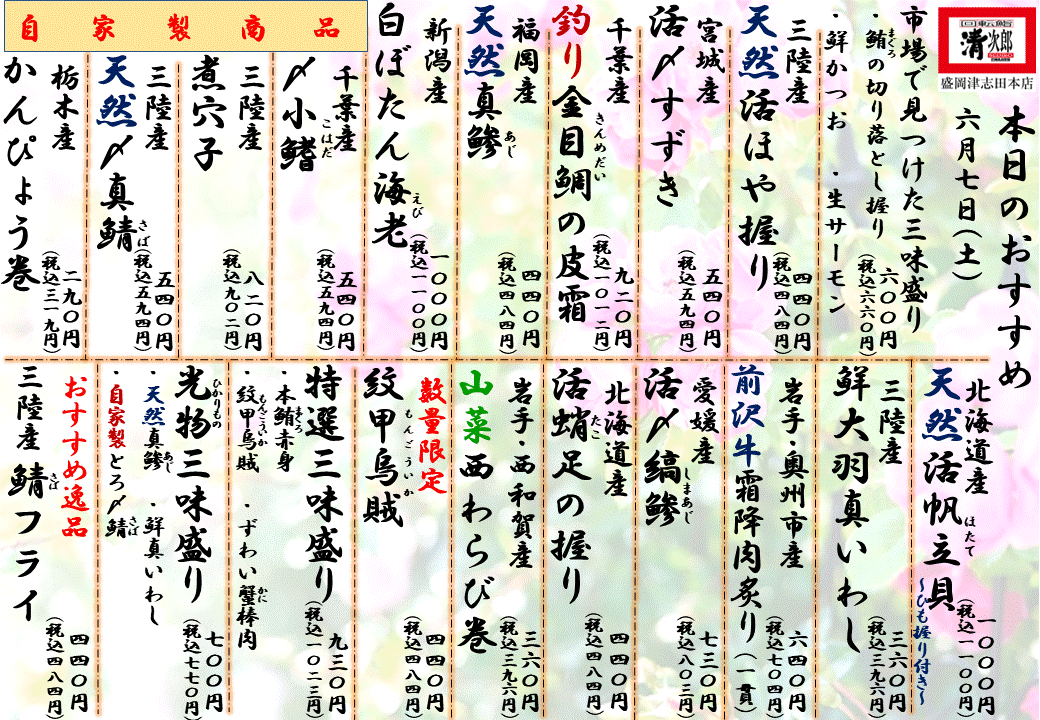 回転鮨
清次郎
盛岡津志田本店
本日のおすすめ
六月七日(土)
市場で見つけた三味盛り
・鮪の切り落とし握り
まぐろ
・鮮かつお ・生サーモン
六〇〇円
(税込六六〇円)
三陸産
天然活ほや握り
四四〇円
(税込四八四円)
宮城産
活〆すずき
五四〇円
(税込五九四円)
千葉産
釣り金目鯛の皮霜
きんめだい
九二〇円
(税込一〇一二円)
福岡産
天然真鯵
あじ
四四〇円
(税込四八四円)
新潟産
白ぼたん海老
えび
一〇〇〇円
(税込一一〇〇円)
自家製商品
千葉産
〆小鰭
こはだ
五四〇円
(税込五九四円)
三陸産
煮穴子
八二〇円
(税込九〇二円)
三陸産
天然〆真鯖
さば
五四〇円
(税込五九四円)
栃木産
かんぴょう巻
二九〇円
(税込三一九円)
北海道産
天然活帆立貝
ほたて
~ひも握り付き~
一〇〇〇円
(税込一一〇〇円)
三陸産
鮮大羽真いわし
三六〇円
(税込三九六円)
岩手・奥州市産
前沢牛霜降肉炙り(一貫)
六四〇円
(税込七〇四円)
愛媛産
活〆縞鯵
しまあじ
七三〇円
(税込八〇三円)
北海道産
活蛸足の握り
たこ
四四〇円
(税込四八四円)
岩手・西和賀産
山菜西わらび巻
三六〇円
(税込三九六円)
数量限定
紋甲烏賊
もんごういか
四四〇円
(税込四八四円)
特選三味盛り
・本鮪赤身
まぐろ
・紋甲烏賊 ・ずわい蟹棒肉
もんごういか かに
九三〇円
(税込一〇二三円)
光物三味盛り
ひかりもの
・天然真鯵 ・鮮真いわし
あじ
・自家製とろ〆鯖
さば
七〇〇円
(税込七七〇円)
おすすめ逸品
三陸産 鯖フライ
さば
四四〇円
(税込四八四円)